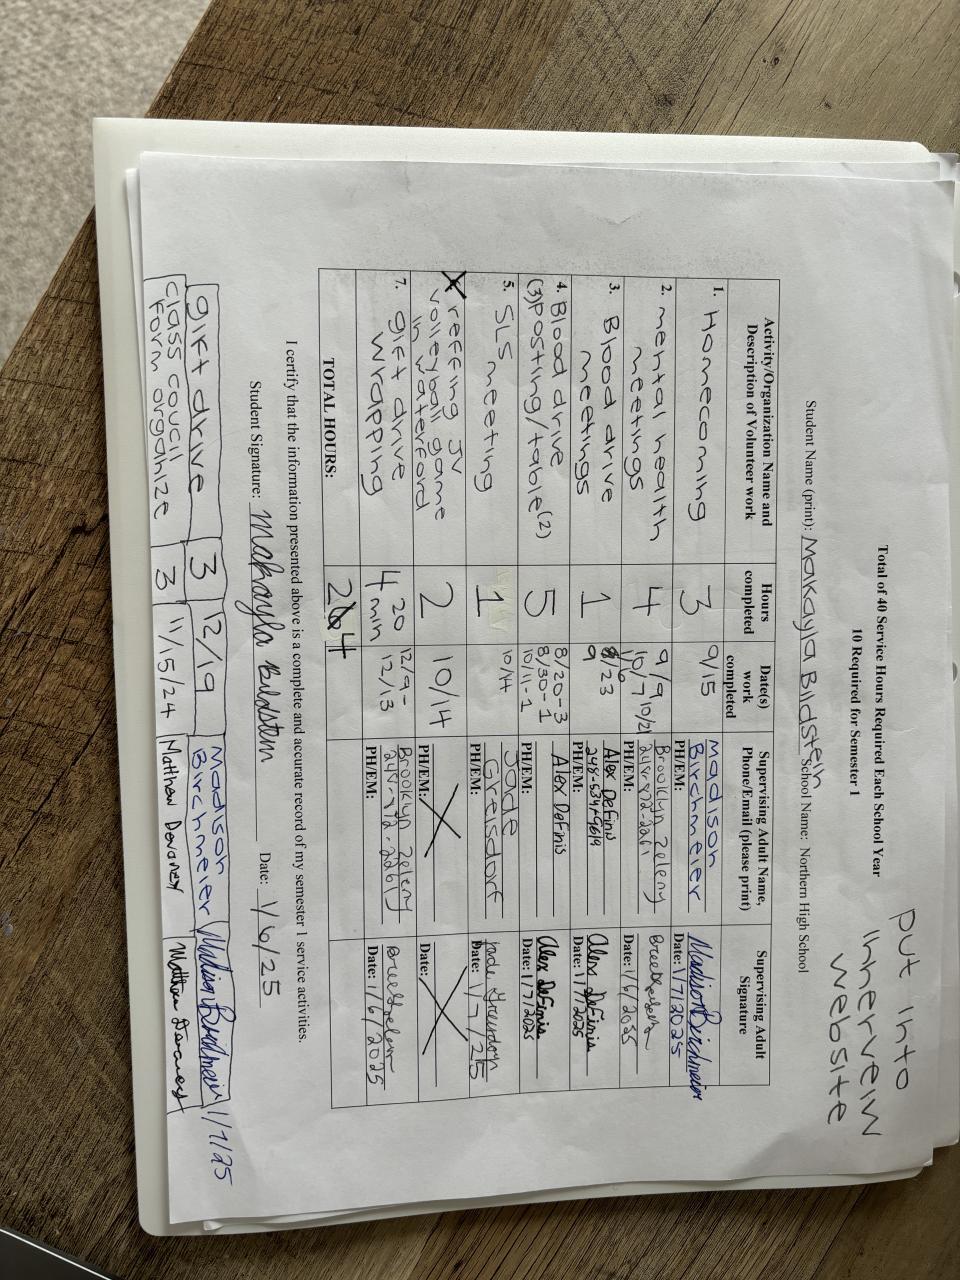 Total of 40 Service Hours Required Each School Year
10 Required for Semester 1
put into
innerveiw
website
Student Name (print): Makayla Bildstein School Name: Northern High School
Activity/Organization Name and
Description of Volunteer work
Hours
completed
Date(s)
work
completed
Supervising Adult Name,
Phone/Email (please print)
Supervising Adult
Signature
1. Homecoming
3
9/15
Madison
Birchmeier
PH/EM:
Madison Birchmeier
Date: 1/7/2025
2. mental health
meetings
4
9/9 10/21
10/7
Brooklyn Zeleny
PH/EM:
Date: 1/6/2025
3. Blood drive
meetings
1
8/23
9
Alex DeFinis
PH/EM:
Alex DeFinis
Date: 1/7/2025
4. Blood drive
(3)posting/table(2)
5
8/20-3
8/30-1
10/11-1
Alex DeFinis
PH/EM:
Alex DeFinis
Date: 1/7/2025
5. SLS meeting
1
10/14
Jade
Greisdorf
PH/EM:
Date: 1/7/25
reffing JV
volleyball game
in waterford
2
10/14
PH/EM:
Date:
7. gift drive
wrapping
4 20
min
12/9-
12/13
Brooklyn Zeleny
PH/EM:
Date: 1/6/2025
TOTAL HOURS:
24
I certify that the information presented above is a complete and accurate record of my semester 1 service activities.
Student Signature: Makayla Bildstein Date: 1/6/25
gift drive
3
12/19
Madison
Birchmeier
Madison Birchmeier 1/7/25
class coucil
form organize
3
11/15/24
Matthew Devaney
Matthew Devaney